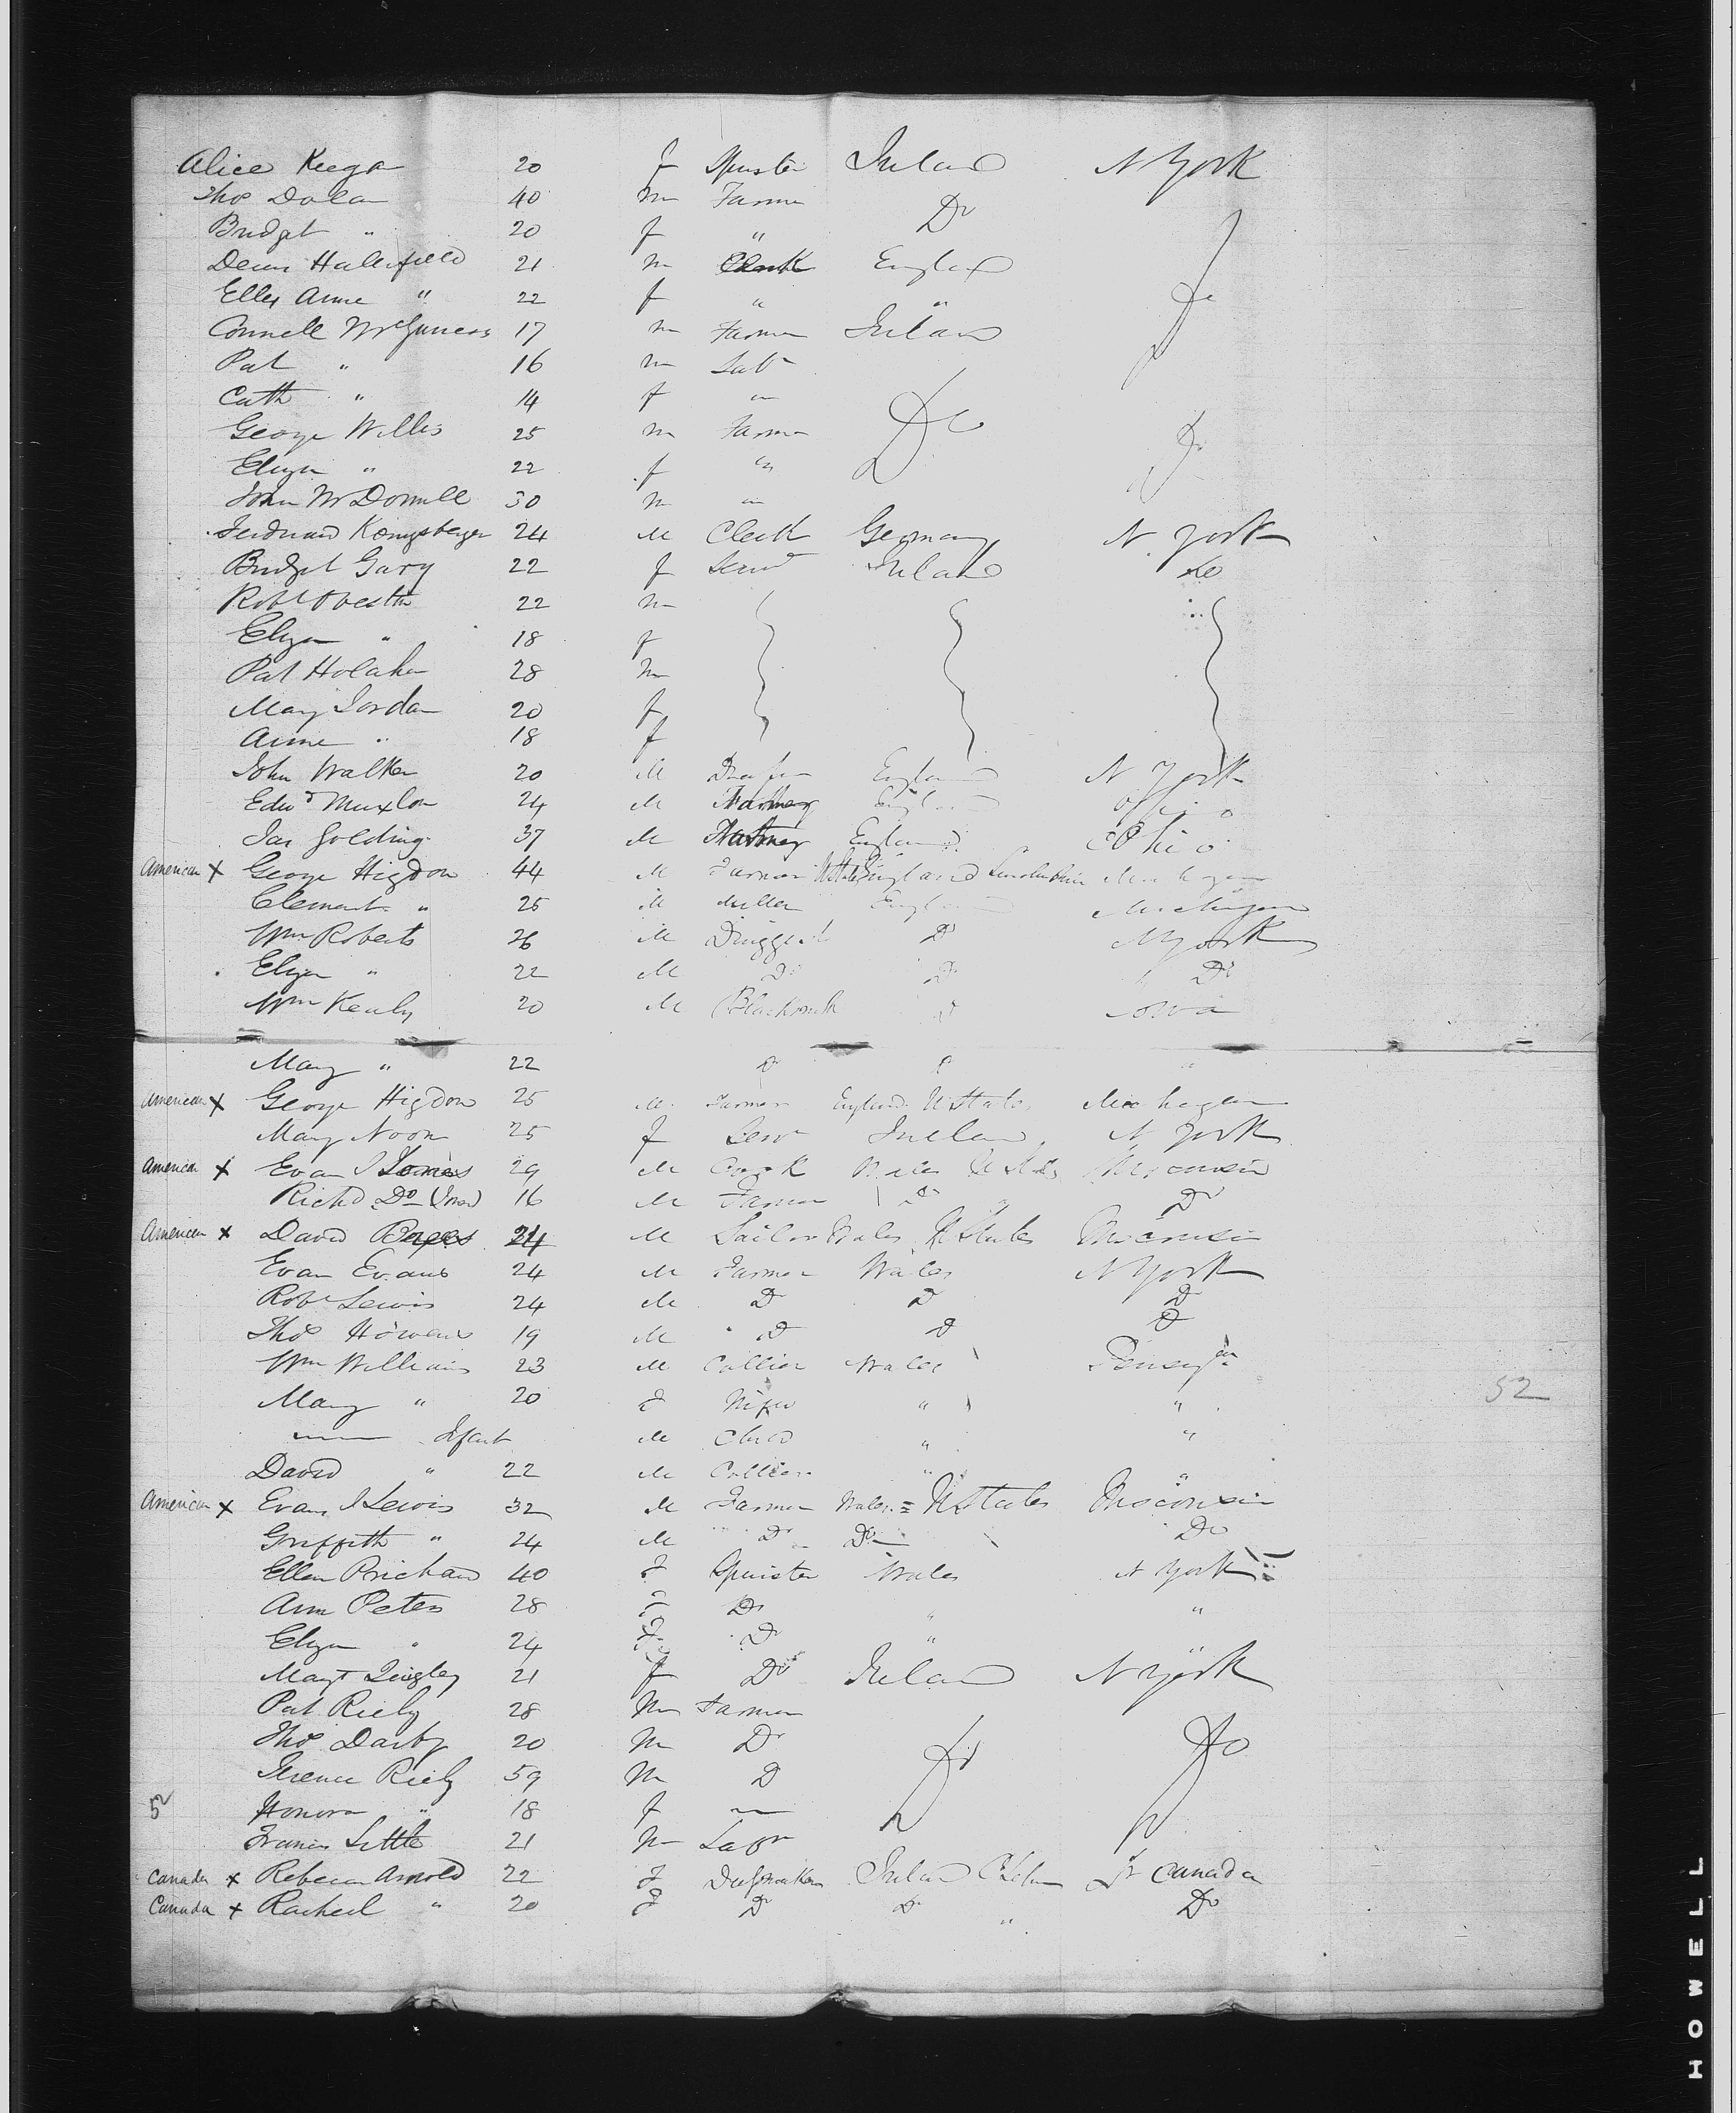 Alice Keegan 20 f Spinster Ireland N York
Thos Dolan 40 m Farmer Do
Bridget " 20 f "
Hallifield 21 m Clerk England
Ellen Anne " 22 f " " Do
Connell McGuness 17 m Farmer Ireland
Pat " 16 m Labr
Cath " 14 f "
George Willis 25 m Farmer Do Do
Eliza " 22 f "
John McDonnell 30 m "
Ferdinand Konigsberger 24 M Clerk Germany N. York
Bridget Gary 22 f Servt Ireland Do
Robt 22 m
Eliza " 18 f
Pat Holahan 28 m
Mary Jordan 20 f
Anne " 18 f
John Walker 20 M Draper England N York
Edwd Muxlow 24 M England Ohio
Jas Golding 37 M England Ohio
American x George Higdon 44 M Farmer U States England Lincolnshire Michegan
Clement " 25 M Miller England Michigan
Wm Roberts 26 M Druggist Do N York
Eliza " 22 M Do Do Do
Wm Kealy 20 M Blacksmith Do Iowa
Mary " 22 Do Do "
American x George Higdon 25 M. Farmer England U States Michegan
Mary Noon 25 f Serv Ireland N York
American x Evan J Jones 29 M Cook Wales U States Wisconsin
Richd Do (Jones) 16 M Farmer Do Do
American x David 24 M Sailor Wales U States Wisconsin
Evan Evans 24 M Farmer Wales N York
Robt Lewis 24 M D D D
Thos Howens 19 M D D D
Wm Williams 23 M Collier Wales
52
Mary " 20 F Wife " "
Infant M Child " "
David " 22 M Collier " "
American x Evan J Lewis 32 M Farmer Wales = U States Wisconsin
Griffith " 24 M Do Do Do
Ellen Prichard 40 F Spinster Wales N York
Ann Peters 28 F Do " "
Eliza " 24 F Do "
Margt Quigley 21 f Do Ireland N York
Pat Riely 28 m Farmer
Thos Darby 20 m Do Do Do
Terence Riely 59 m D
52 Honora " 18 f
Francis Little 21 m Labr
Canada x Rebecca Arnold 22 F Dressmaker Ireland Canada
Canada x Racheel " 20 F D Do " Do
HOWELL